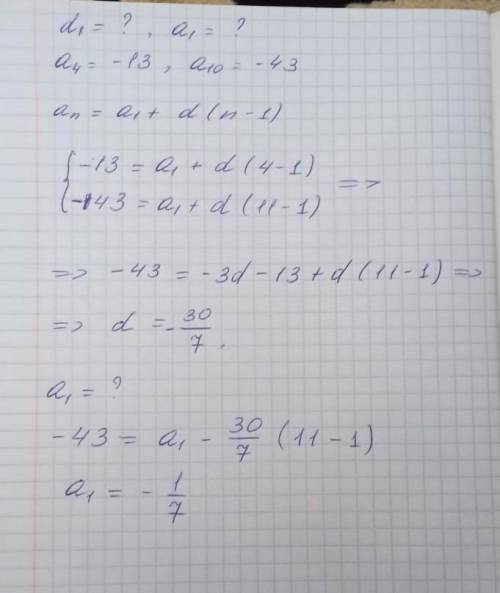 d₁ = ? , a₁ = ?
a₄ = -13 , a₁₀ = -43
aₙ = a₁ + d (n - 1)
{ -13 = a₁ + d (4 - 1)
-43 = a₁ + d (11 - 1) =>
=> -43 = -3d - 13 + d (11 - 1) =>
=> d = - 30/7 .
a₁ = ?
-43 = a₁ - 30/7 (11 - 1)
a₁ = - 1/7